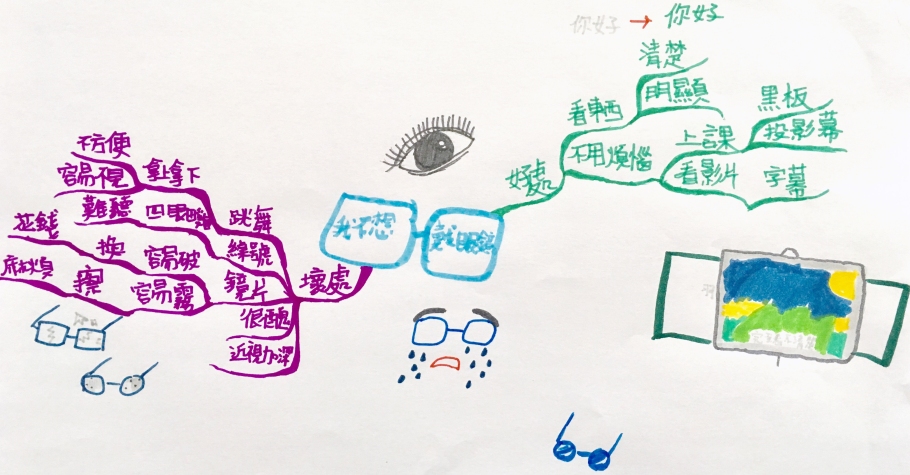 你好 → 你好
清楚
明顯
看東西
黑板
投影幕
上課
不用煩惱
看影片
字幕
好處
我不想
戴眼鏡
不方便
容易
拿上拿下
難聽
四眼田雞
跳舞
綽號
花錢
換
容易破
麻煩
擦
容易霧
鏡片
壞處
很醜
近視加深